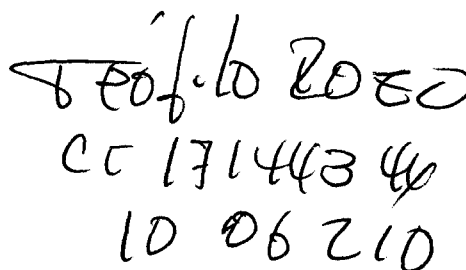 Teófilo Rozo
CC 17144344
10 06 210